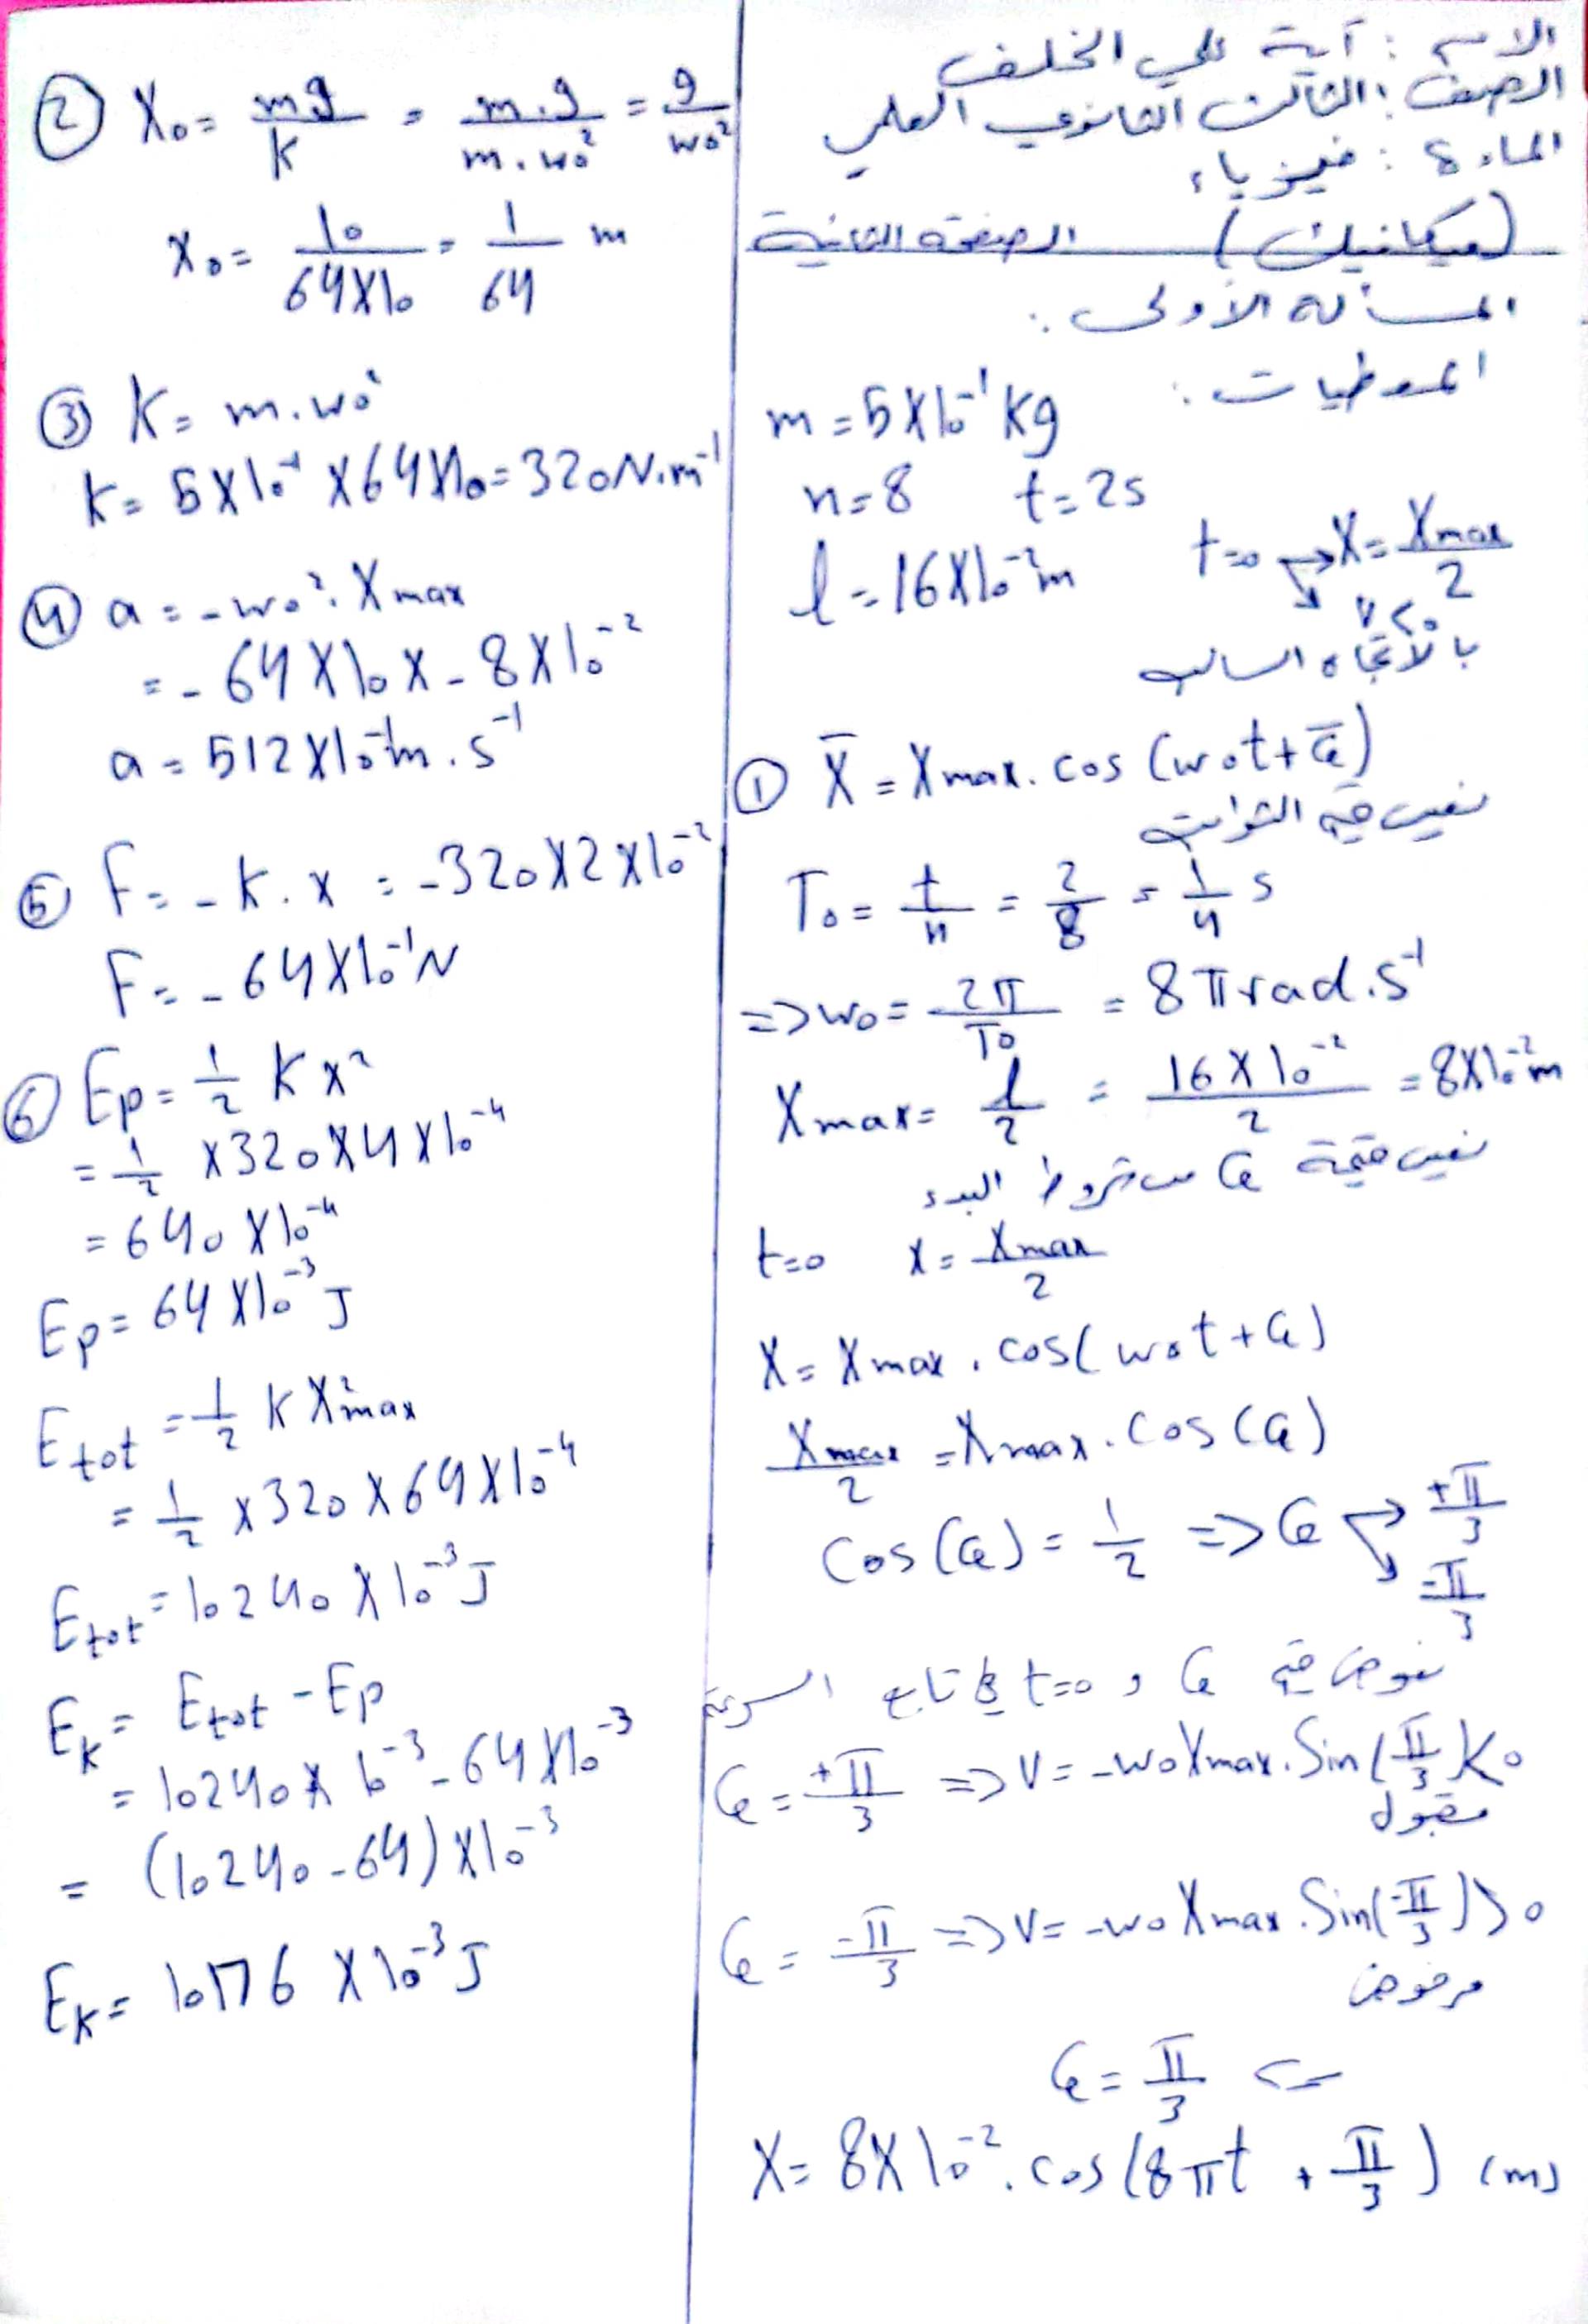 الاسم : آية علي الخلف
الصف : الثالث الثانوي العلمي
المادة : فيزياء
(ميكانيك) الصفحة الثانية
المسألة الأولى :
المعطيات :
m = 5X10^-1 Kg
n = 8 t = 2s
l = 16X10^-2 m t=0 → X = Xmax/2
↘ v<0
بالاتجاه السالب
① X̄ = Xmax . cos (w0t + φ̄)
نعين قيم الثوابت
T0 = t/n = 2/8 = 1/4 s
=> w0 = 2π/T0 = 8π rad.s^-1
Xmax = l/2 = 16X10^-2/2 = 8X10^-2 m
نعين قيمة φ من شروط البدء
t=0 x = Xmax/2
X = Xmax . cos( w0t + φ )
Xmax/2 = Xmax . Cos (φ)
Cos (φ) = 1/2 => φ → +π/3
↘ -π/3
نعوض قيم φ و t=0 في تابع السرعة
φ = +π/3 => V = -w0Xmax. Sin(π/3)<0
مقبول
φ = -π/3 => V = -w0Xmax. Sin(-π/3)>0
مرفوض
φ = π/3 <=
X = 8X10^-2 . cos (8πt + π/3) (m)
② X0 = mg/K = m.g/m.w0² = g/w0²
X0 = 10/64X10 = 1/64 m
③ K = m.w0²
K = 5X10^-1 X64X10 = 320 N.m^-1
④ a = -w0² . Xmax
= - 64 X10 X - 8X10^-2
a = 512X10^-1 m.s^-1
⑤ F = - K . x = -320X2X10^-2
F = - 64X10^-1 N
⑥ Ep = 1/2 K x²
= 1/2 X320X4X10^-4
= 640 X10^-4
Ep = 64X10^-3 J
Etot = 1/2 K X²max
= 1/2 X320X64X10^-4
Etot = 10240 X10^-3 J
EK = Etot - Ep
= 10240X 10^-3 - 64X10^-3
= (10240 - 64) X10^-3
EK = 10176 X10^-3 J